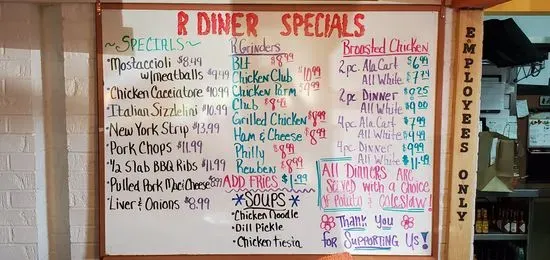 R DINER SPECIALS
~SPECIALS~
•Mostaccioli $8.49
w/meatballs $9.49
•Chicken Cacciatore $10.99
•Italian Sizzlelini $10.99
•New York Strip $13.99
•Pork Chops $11.99
•1/2 Slab BBQ Ribs $11.99
•Pulled Pork Mac:Cheese $8.99
•Liver & Onions $8.99
R Grinders
BLT $8.99
Chicken Club $10.99
Chicken Parm $9.99
Club $8.49
Grilled Chicken $8.99
Ham & Cheese $8.99
Philly $8.99
Reuben $8.99
ADD FRIES $1.99
*SOUPS*
•Chicken Noodle
•Dill Pickle
•Chicken Fiesia
Broasted Chicken
2pc. Ala Cart $6.99
All White $7.74
2pc Dinner $8.25
All White $9.00
4pc Ala Cart $7.99
All White $9.49
4pc. Dinner $9.99
All White $11.49
All Dinners Are
Served with a choice
of Potato & Coleslaw!
Thank You
for Supporting Us!
EMPLOYEES ONLY